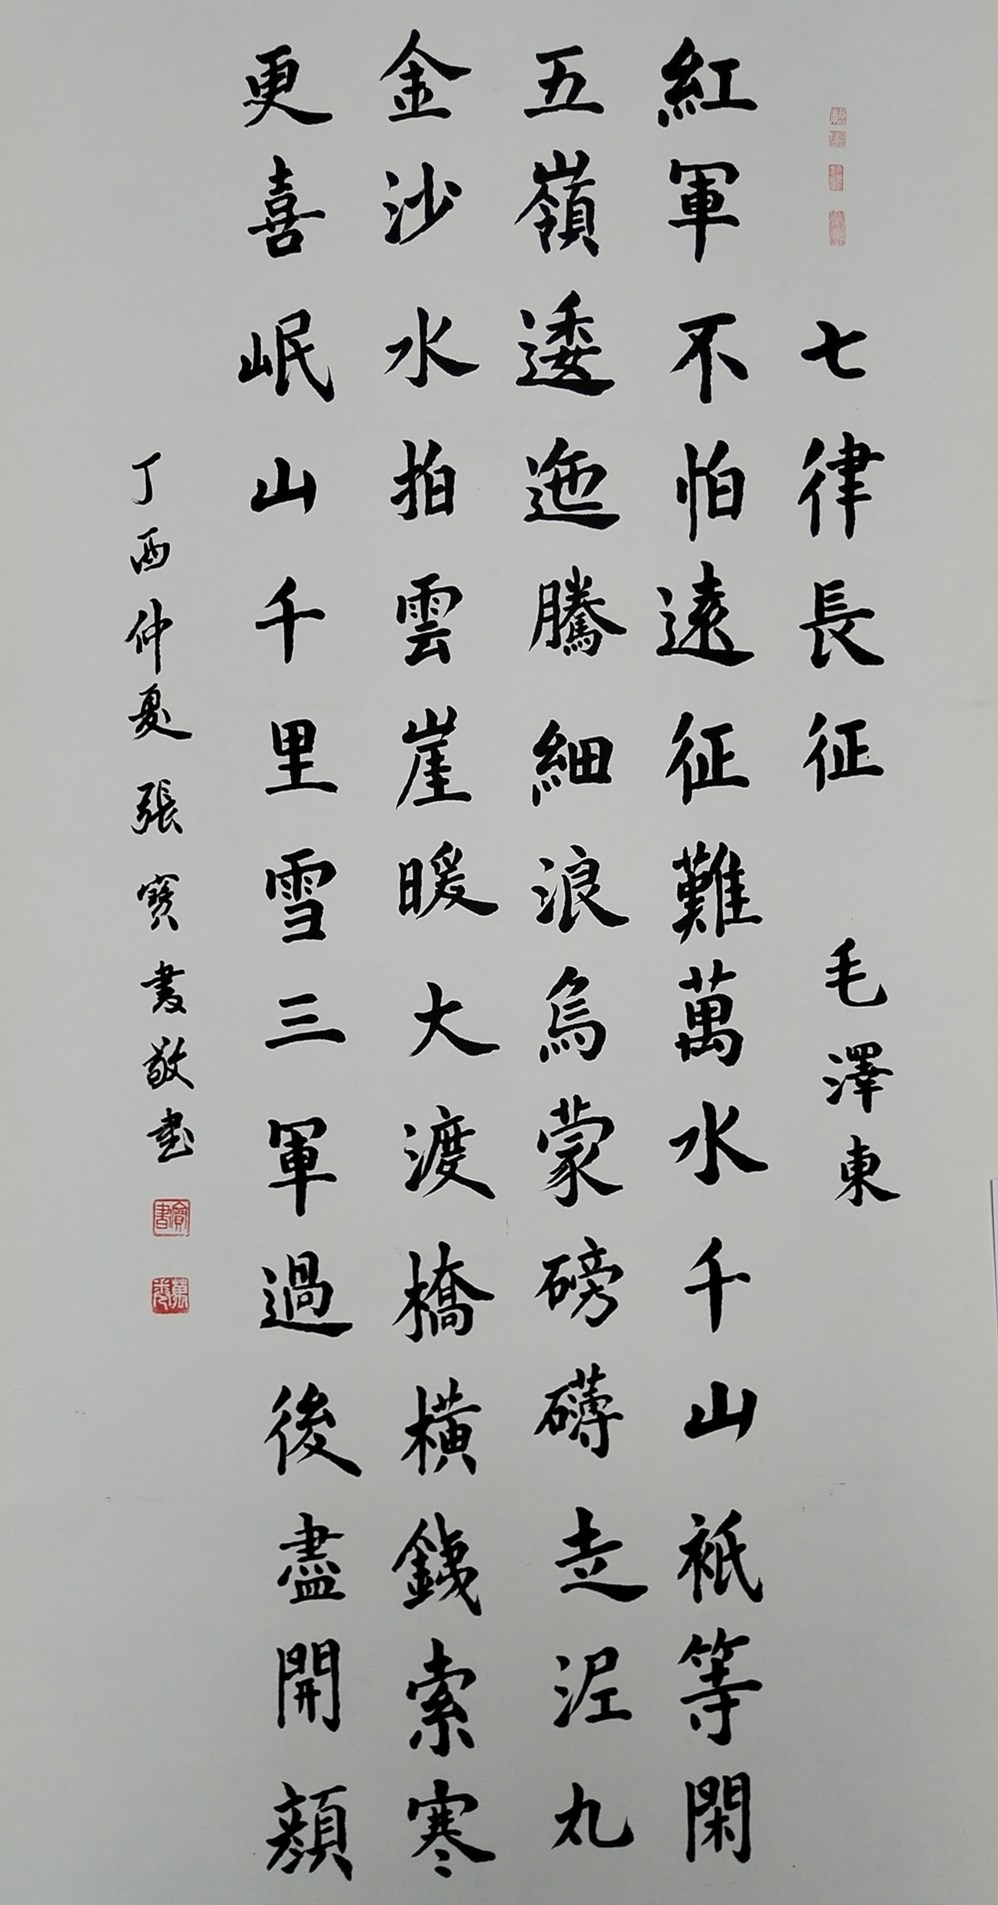 七律長征 毛澤東
紅軍不怕遠征難萬水千山衹等閑
五嶺逶迤騰細浪烏蒙磅礴走泥丸
金沙水拍雲崖暖大渡橋橫鐵索寒
更喜岷山千里雪三軍過後盡開顏
丁酉仲夏 張寶書敬書